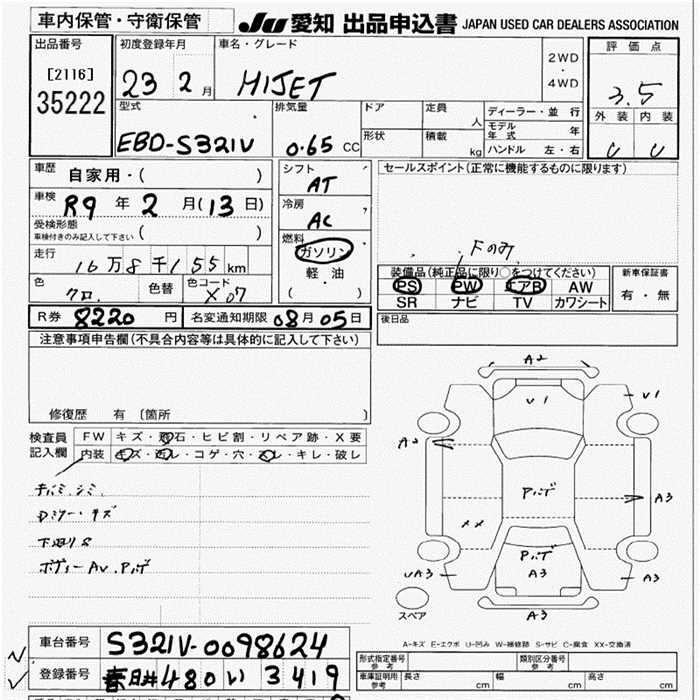 車内保管・守衛保管
JU 愛知 出品申込書 JAPAN USED CAR DEALERS ASSOCIATION
出品番号
[2116]
35222
初度登録年月
23 2月
車名・グレード
HIJET
2WD
・
4WD
評価点
3.5
外装 内装
C C
型式
EBD-S321V
排気量
0.65 CC
ドア
定員
人
形状
積載
kg
ディーラー・並 行
モデル年式 年
ハンドル 左・右
車歴
自家用・( )
車検
R9年2月(13日)
受検形態
車検付きのみ記入して下さい ( )
走行
16万8千155km
色
クロ.
色替
色コード
X07
シフト
AT
冷房
AC
燃料
ガソリン
軽・油
( )
セールスポイント(正常に機能するものに限ります)
Fのみ
装備品(純正品に限り○をつけてください)
PS PW エアB AW
SR ナビ TV カワシート
新車保証書
有・無
R券 8220円
名変通知期限 08月05日
後日品
注意事項申告欄(不具合内容等は具体的に記入して下さい)
修復歴 有 〔箇所
検査員
記入欄
FW キズ・飛石・ヒビ割・リペア跡・X要
内装 キズ・汚レ・コゲ・穴・スレ・キレ・破レ
下回りS
A2
V1
V1
A2
A3
XX
A3
UA3
A3
A3
スペア
A-キズ E-エクボ U-凹み W-補修跡 S-サビ C-腐食 XX-交換済
車台番号
S321V-0098624
登録番号
春日井480い3419
形式指定番号
参考
類別区分番号
参考
車庫証明用
参考
長さ cm 幅 cm 高さ cm